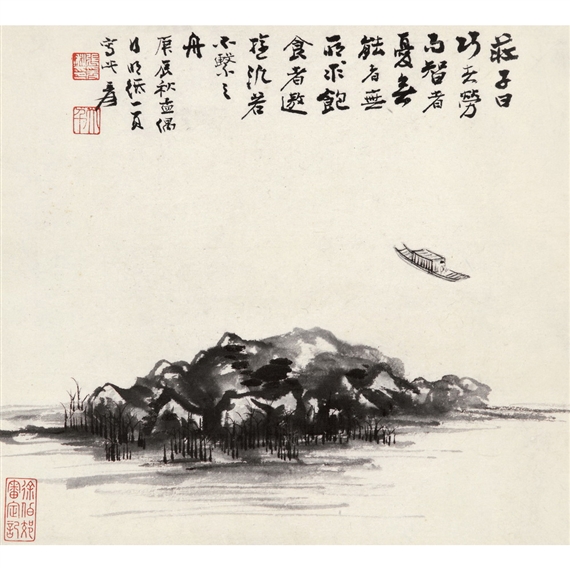 莊子曰
巧者勞
而智者
憂無
能者無
所求飽
食者遨
遊汎若
不繫之
舟
庚辰秋孟偶
明紙一頁
寫此 爰
徐伯郊
審定記